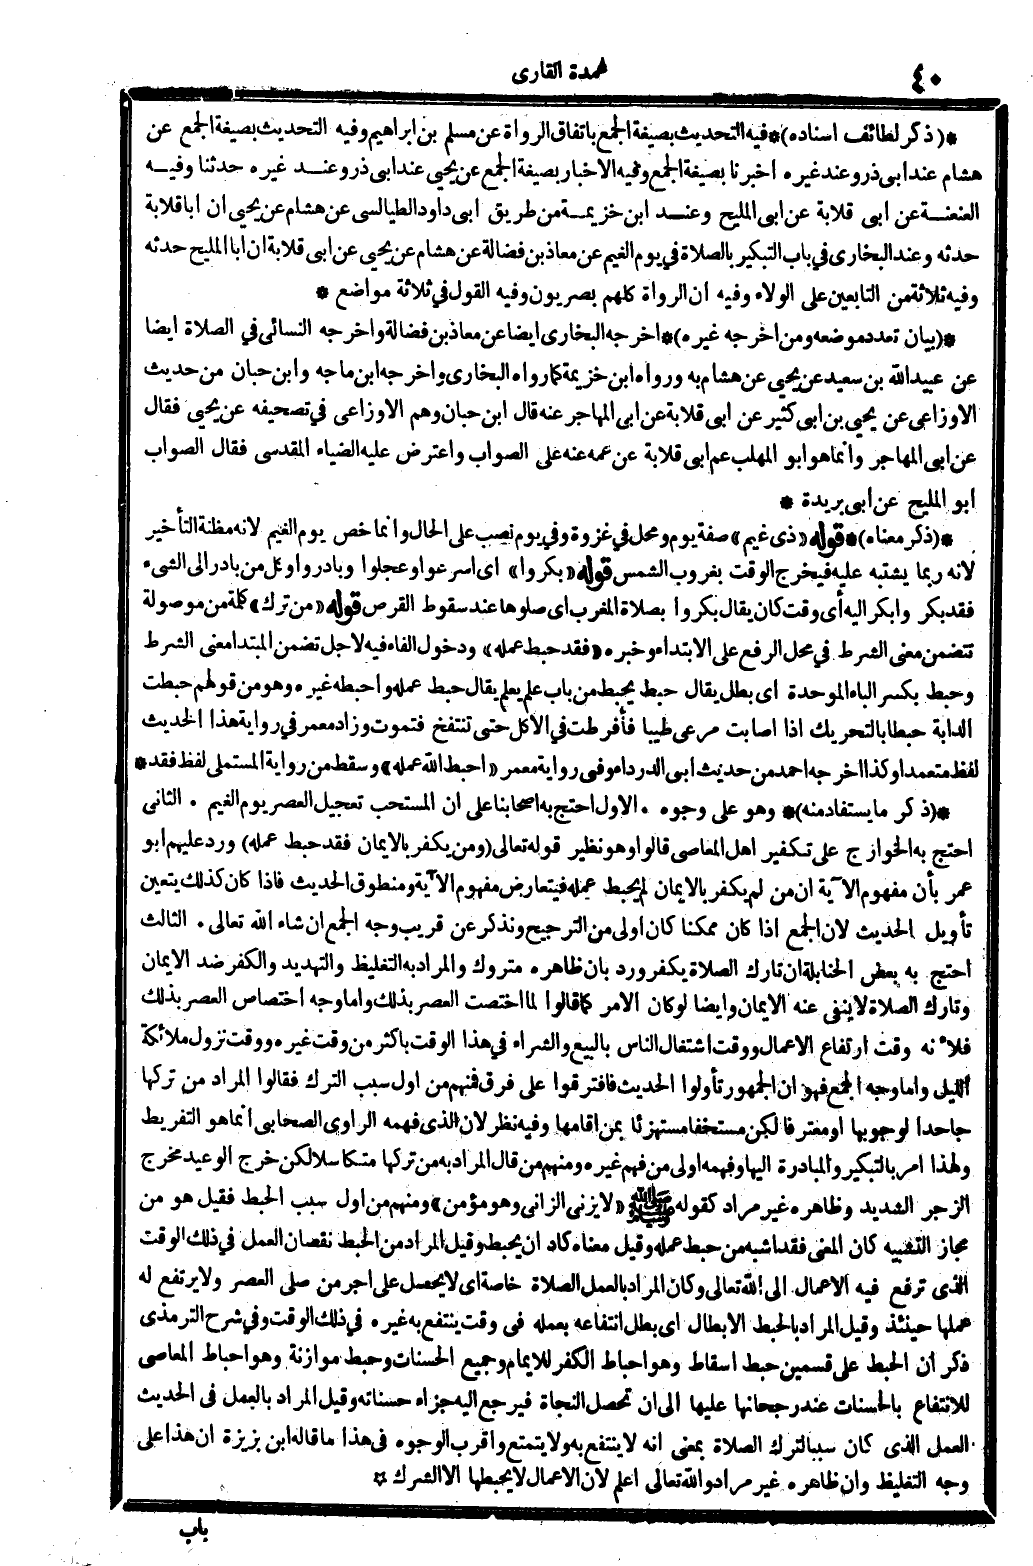 ٤٠
عمدة القارى
*(ذكر لطائف اسناده)* فيه التحديث بصيغة الجمع باتفاق الرواة عن مسلم بن ابراهيم وفيه التحديث بصيغة الجمع عن
هشام عند ابى ذر وعند غيره اخبرنا بصيغة الجمع وفيه الاخبار بصيغة الجمع عن يحيى عند ابى ذر وعند غيره حدثنا وفيه
العنعنة عن ابى قلابة عن ابى المليح وعند ابن خزيمة من طريق ابى داود الطيالسى عن هشام عن يحيى ان ابا قلابة
حدثه وعند البخارى فى باب التبكير بالصلاة فى يوم الغيم عن معاذ بن فضالة عن هشام عن يحيى عن ابى قلابة ان ابا المليح حدثه
وفيه ثلاثة من التابعين على الولاء وفيه ان الرواة كلهم بصريون وفيه القول فى ثلاثة مواضع *
*(بيان تعدد موضعه ومن اخرجه غيره)* اخرجه البخارى ايضا عن معاذ بن فضالة واخرجه النسائى فى الصلاة ايضا
عن عبيد الله بن سعيد عن يحيى عن هشام به ورواه ابن خزيمة كما رواه البخارى واخرجه ابن ماجه وابن حبان من حديث
الاوزاعى عن يحيى بن ابى كثير عن ابى قلابة عن ابى المهاجر عنه قال ابن حبان وهم الاوزاعى فى تصحيفه عن يحيى فقال
عن ابى المهاجر وانما هو ابو المهلب عم ابى قلابة عن عمه عنه على الصواب واعترض عليه الضياء المقدسى فقال الصواب
ابو المليح عن ابى بريدة *
*(ذكر معناه)* قوله «ذى غيم» صفة يوم ومحل فى غزوة وفى يوم نصب على الحال وانما خص يوم الغيم لانه مظنة التأخير
لانه ربما يشتبه عليه فيخرج الوقت بغروب الشمس قوله «بكروا» اى اسرعوا وعجلوا وبادروا وكل من بادر الى الشىء
فقد بكر وابكر اليه أى وقت كان يقال بكروا بصلاة المغرب اى صلوها عند سقوط القرص قوله «من ترك» كلمة من موصولة
تتضمن معنى الشرط فى محل الرفع على الابتداء وخبره «فقد حبط عمله» ودخول الفاء فيه لاجل تضمن المبتدا معنى الشرط
وحبط بكسر الباء الموحدة اى بطل يقال حبط يحبط من باب علم يعلم يقال حبط عمله واحبطه غيره وهو من قولهم حبطت
الدابة حبطا بالتحريك اذا اصابت مرعى طيبا فأفرطت فى الاكل حتى تنتفخ فتموت وزاد معمر فى رواية هذا الحديث
لفظ متعمدا وكذا اخرجه احمد من حديث ابى الدرداء وفى رواية معمر «احبط الله عمله» وسقط من رواية المستملى لفظ فقد *
*(ذكر ما يستفاد منه)* وهو على وجوه . الاول احتج به اصحابنا على ان المستحب تعجيل العصر يوم الغيم . الثانى
احتج به الخوارج على تكفير اهل المعاصى قالوا وهو نظير قوله تعالى (ومن يكفر بالايمان فقد حبط عمله) ورد عليهم أبو
عمر بأن مفهوم الآية ان من لم يكفر بالايمان لم يحبط عمله فيتعارض مفهوم الآية ومنطوق الحديث فاذا كان كذلك يتعين
تأويل الحديث لان الجمع اذا كان ممكنا كان اولى من الترجيح ونذكر عن قريب وجه الجمع ان شاء الله تعالى . الثالث
احتج به بعض الحنابلة ان تارك الصلاة يكفر ورد بان ظاهره متروك والمراد به التغليظ والتهديد والكفر ضد الايمان
وتارك الصلاة لا ينفى عنه الايمان وايضا لو كان الامر كما قالوا لما اختصت العصر بذلك واما وجه اختصاص العصر بذلك
فلأنه وقت ارتفاع الاعمال ووقت اشتغال الناس بالبيع والشراء فى هذا الوقت باكثر من وقت غيره ووقت نزول ملائكة
الليل واما وجه الجمع فهو ان الجمهور تأولوا الحديث فافترقوا على فرق فمنهم من اول سبب الترك فقالوا المراد من تركها
جاحدا لوجوبها او معترفا لكن مستخفا مستهزئا بمن اقامها وفيه نظر لان الذى فهمه الراوى الصحابى انما هو التفريط
ولهذا امر بالتبكير والمبادرة اليها وفهمه اولى من فهم غيره ومنهم من قال المراد به من تركها متكاسلا لكن خرج الوعيد مخرج
الزجر الشديد وظاهره غير مراد كقوله ﷺ «لا يزنى الزانى وهو مؤمن» ومنهم من اول سبب الحبط فقيل هو من
مجاز التشبيه كان المعنى فقد اشبه من حبط عمله وقيل معناه كاد ان يحبط وقيل المراد من الحبط نقصان العمل فى ذلك الوقت
الذى ترفع فيه الاعمال الى الله تعالى وكان المراد بالعمل الصلاة خاصة اى لا يحصل على اجر من صلى العصر ولا يرتفع له
عملها حينئذ وقيل المراد بالحبط الابطال اى بطل انتفاعه بعمله فى وقت ينتفع به غيره فى ذلك الوقت وفى شرح الترمذى
ذكر ان الحبط على قسمين حبط اسقاط وهو احباط الكفر للايمام وجميع الحسنات وحبط موازنة وهو احباط المعاصى
للانتفاع بالحسنات عند رجحانها عليها الى ان تحصل النجاة فيرجع اليه جزاء حسناته وقيل المراد بالعمل فى الحديث
العمل الذى كان سببا لترك الصلاة بمعنى انه لا ينتفع به ولا يتمتع واقرب الوجوه فى هذا ما قاله ابن بزيزة ان هذا على
وجه التغليظ وان ظاهره غير مراد والله تعالى اعلم لان الاعمال لا يحبطها الا الشرك ☆
باب